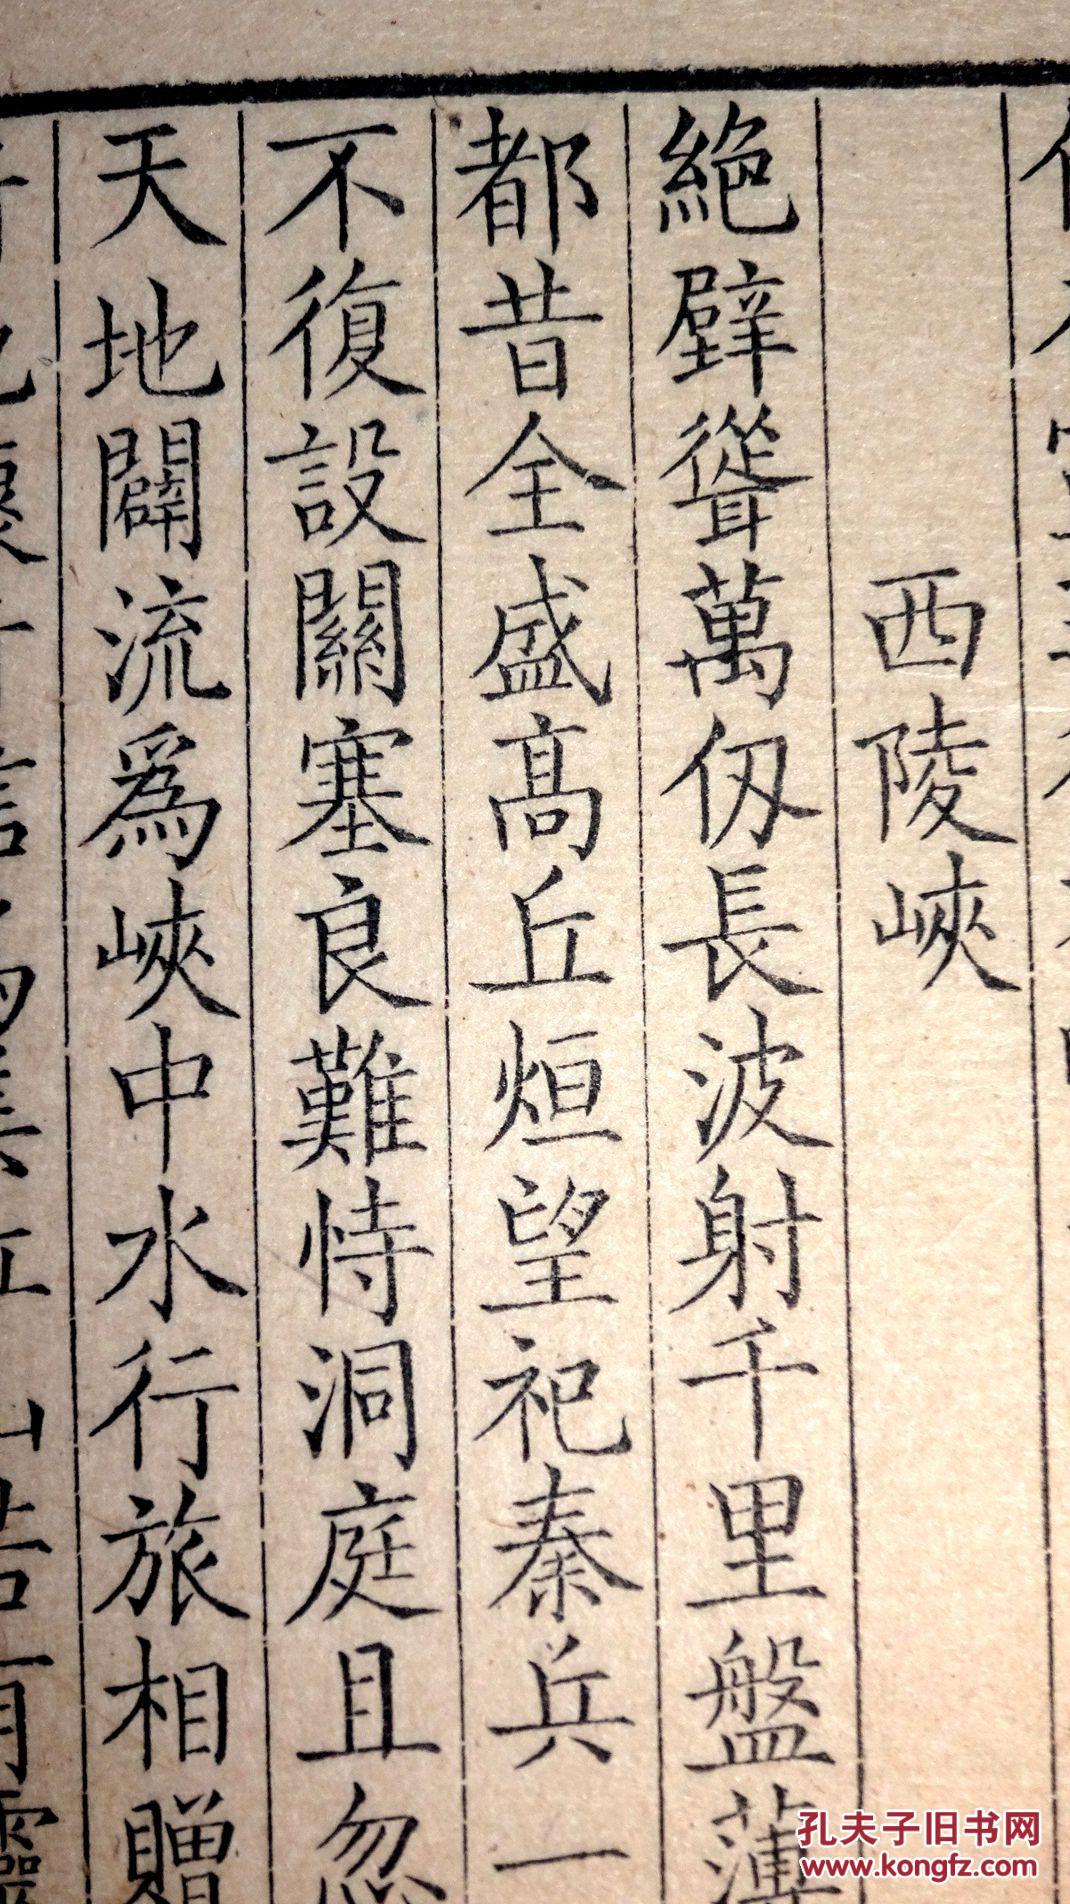 西陵峽
絶壁聳萬仞長波射千里盤薄
都昔全盛高丘烜望祀秦兵一
不復設關塞良難恃洞庭且忽
天地闢流爲峽中水行旅相贈
孔夫子旧书网
www.kongfz.com